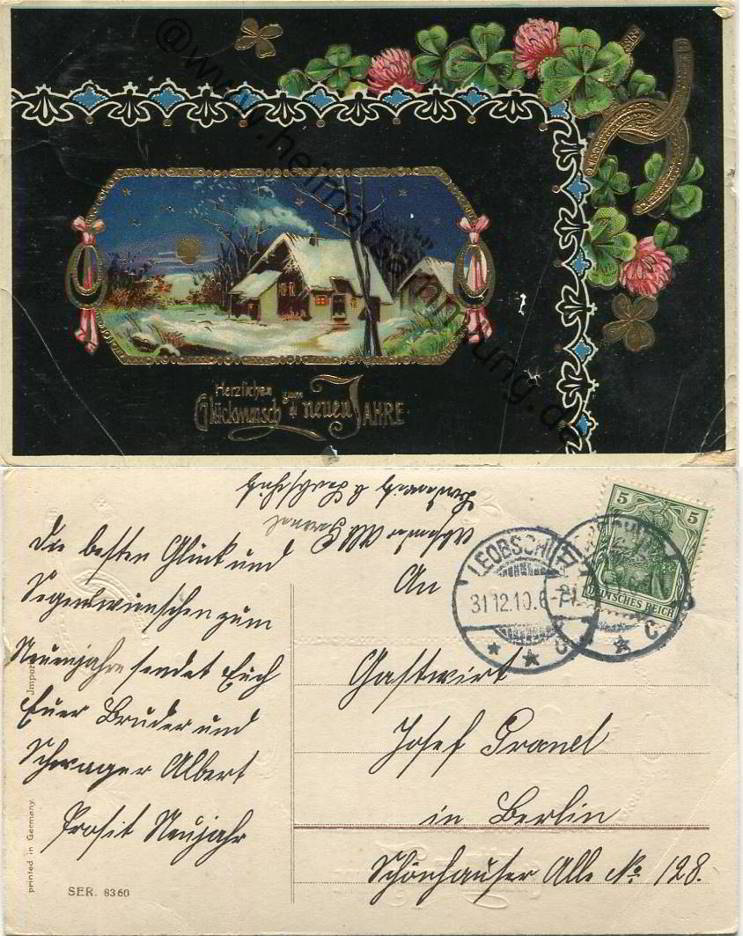 @www.heimatsammlung.de
Herzlichen
Glückwunsch zum neuen JAHRE
Die besten Glück und
Segenswünschen zum
Neuenjahre sendet Euch
Euer Bruder und
Schwager Albert
Prosit Neujahr
An
Gastwirt
Josef Pranel
in Berlin
Schönhauser Alle No 128.
LEOBSCHÜTZ
31.12.10.6-7
* * c
5 5
DEUTSCHES REICH
Import
printed in Germany
SER. 8360